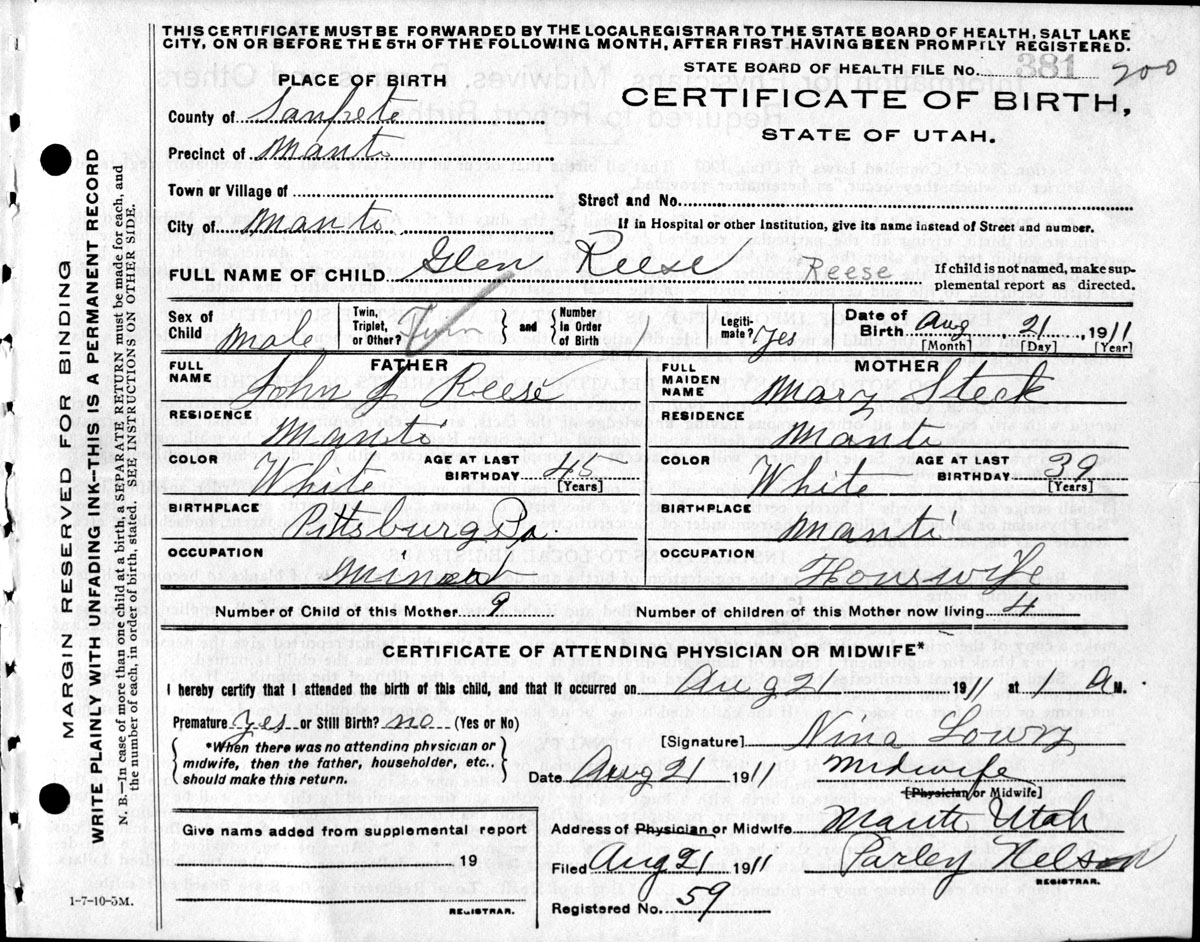 THIS CERTIFICATE MUST BE FORWARDED BY THE LOCAL REGISTRAR TO THE STATE BOARD OF HEALTH, SALT LAKE
CITY, ON OR BEFORE THE 5TH OF THE FOLLOWING MONTH, AFTER FIRST HAVING BEEN PROMPTLY REGISTERED.
STATE BOARD OF HEALTH FILE No. 381 200
PLACE OF BIRTH
CERTIFICATE OF BIRTH,
STATE OF UTAH.
County of Sanpete
Precinct of Manti
Town or Village of
Street and No.
City of Manti
If in Hospital or other Institution, give its name instead of Street and number.
FULL NAME OF CHILD Glen Reese Reese
If child is not named, make sup-
plemental report as directed.
Sex of Child Male
Twin, Triplet, or Other? Twin and Number in Order of Birth
Legiti-mate? Yes
Date of Birth Aug 21 1911
[Month] [Day] [Year]
FATHER
FULL NAME John J Reese
RESIDENCE Manti
COLOR White AGE AT LAST BIRTHDAY 45 [Years]
BIRTHPLACE Pittsburg Pa.
OCCUPATION
MOTHER
FULL MAIDEN NAME Mary Steck
RESIDENCE Manti
COLOR White AGE AT LAST BIRTHDAY 39 [Years]
BIRTHPLACE Manti
OCCUPATION Houswife
Number of Child of this Mother 9 Number of children of this Mother now living 4
CERTIFICATE OF ATTENDING PHYSICIAN OR MIDWIFE*
I hereby certify that I attended the birth of this child, and that it occurred on Aug 21 1911 at 1 A M.
Premature yes or Still Birth? no (Yes or No)
*When there was no attending physician or
midwife, then the father, householder, etc.,
should make this return.
[Signature] Nina Lowry
Date Aug 21 1911 Midwife
[Physician or Midwife]
Give name added from supplemental report
19
REGISTRAR.
Address of Physician or Midwife Manti Utah
Filed Aug 21 1911 Parley Nelson
REGISTRAR.
Registered No. 59
1-7-10-5M.
MARGIN RESERVED FOR BINDING
WRITE PLAINLY WITH UNFADING INK—THIS IS A PERMANENT RECORD
N. B.—In case of more than one child at a birth, a SEPARATE RETURN must be made for each, and
the number of each, in order of birth, stated. SEE INSTRUCTIONS ON OTHER SIDE.